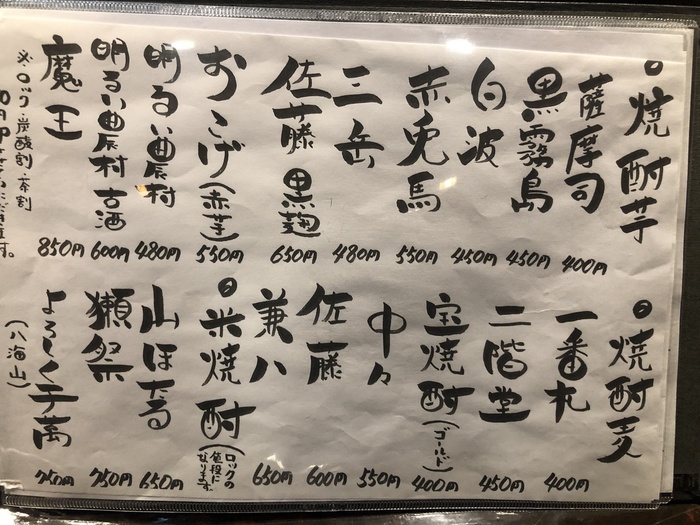 焼酎芋
薩摩司 400円
黒霧島 450円
白波 450円
赤兎馬 550円
三岳 480円
佐藤 黒麹 650円
おこげ(赤芋) 550円
明るい農村 480円
明るい農村 古酒 600円
魔王 850円
※ロック・炭酸割・茶割
焼酎麦
一番札 400円
二階堂 450円
宝焼酎(ゴールド) 400円
中々 550円
佐藤 600円
兼八 650円
米焼酎(ロックの値段になります)
山ほたる 650円
獺祭 750円
よろしく千萬(八海山) 750円